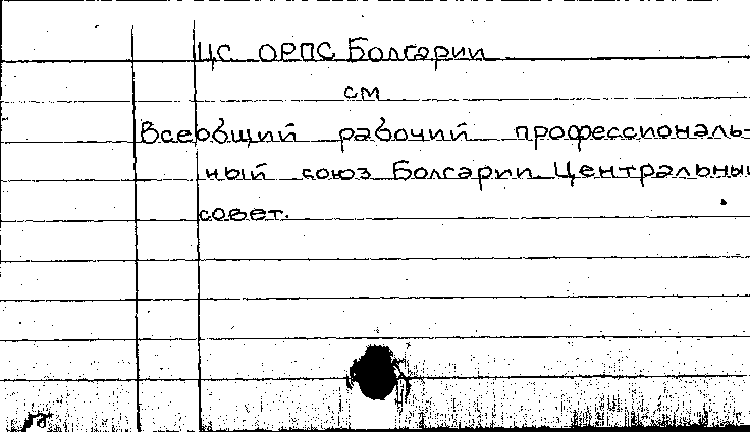 ЦС ОРПС Болгарии
см
Всеобщий рабочий профессиональ-
ный союз Болгарии. Центральный
совет.